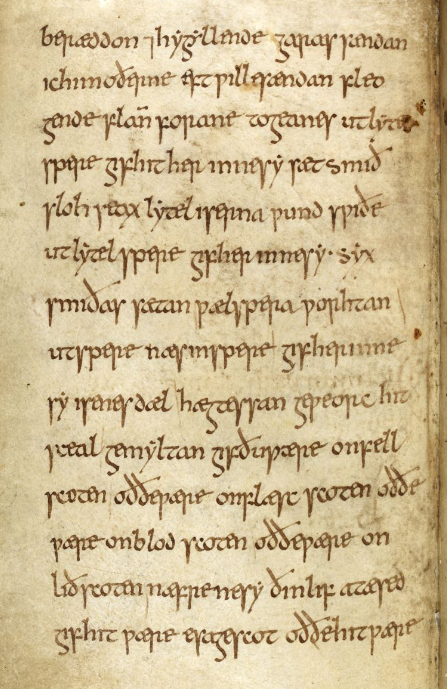 beræddon ⁊ hy gyllende garas sændan
ic him oðerne eft ƿille sændan fleo
gende flan̄ forane togeanes ut lytel
spere gif hit her inne sy sæt smið
sloh seax lytel iserna ƿund sƿiðe
ut lytel spere gif her inne sy · syx
smiðas sætan ƿælspera ƿorhtan
ut spere næs in spere gif her inne
sy isenes dæl hægtessan geƿeorc hit
sceal gemyltan gif ðu ƿære on fell
scoten oððe ƿære on flæsc scoten oððe
ƿære on blod scoten oððe ƿære on
lið scoten næfre ne sy ðin lif atæsed
gif hit ƿære esa gescot oððe hit ƿære